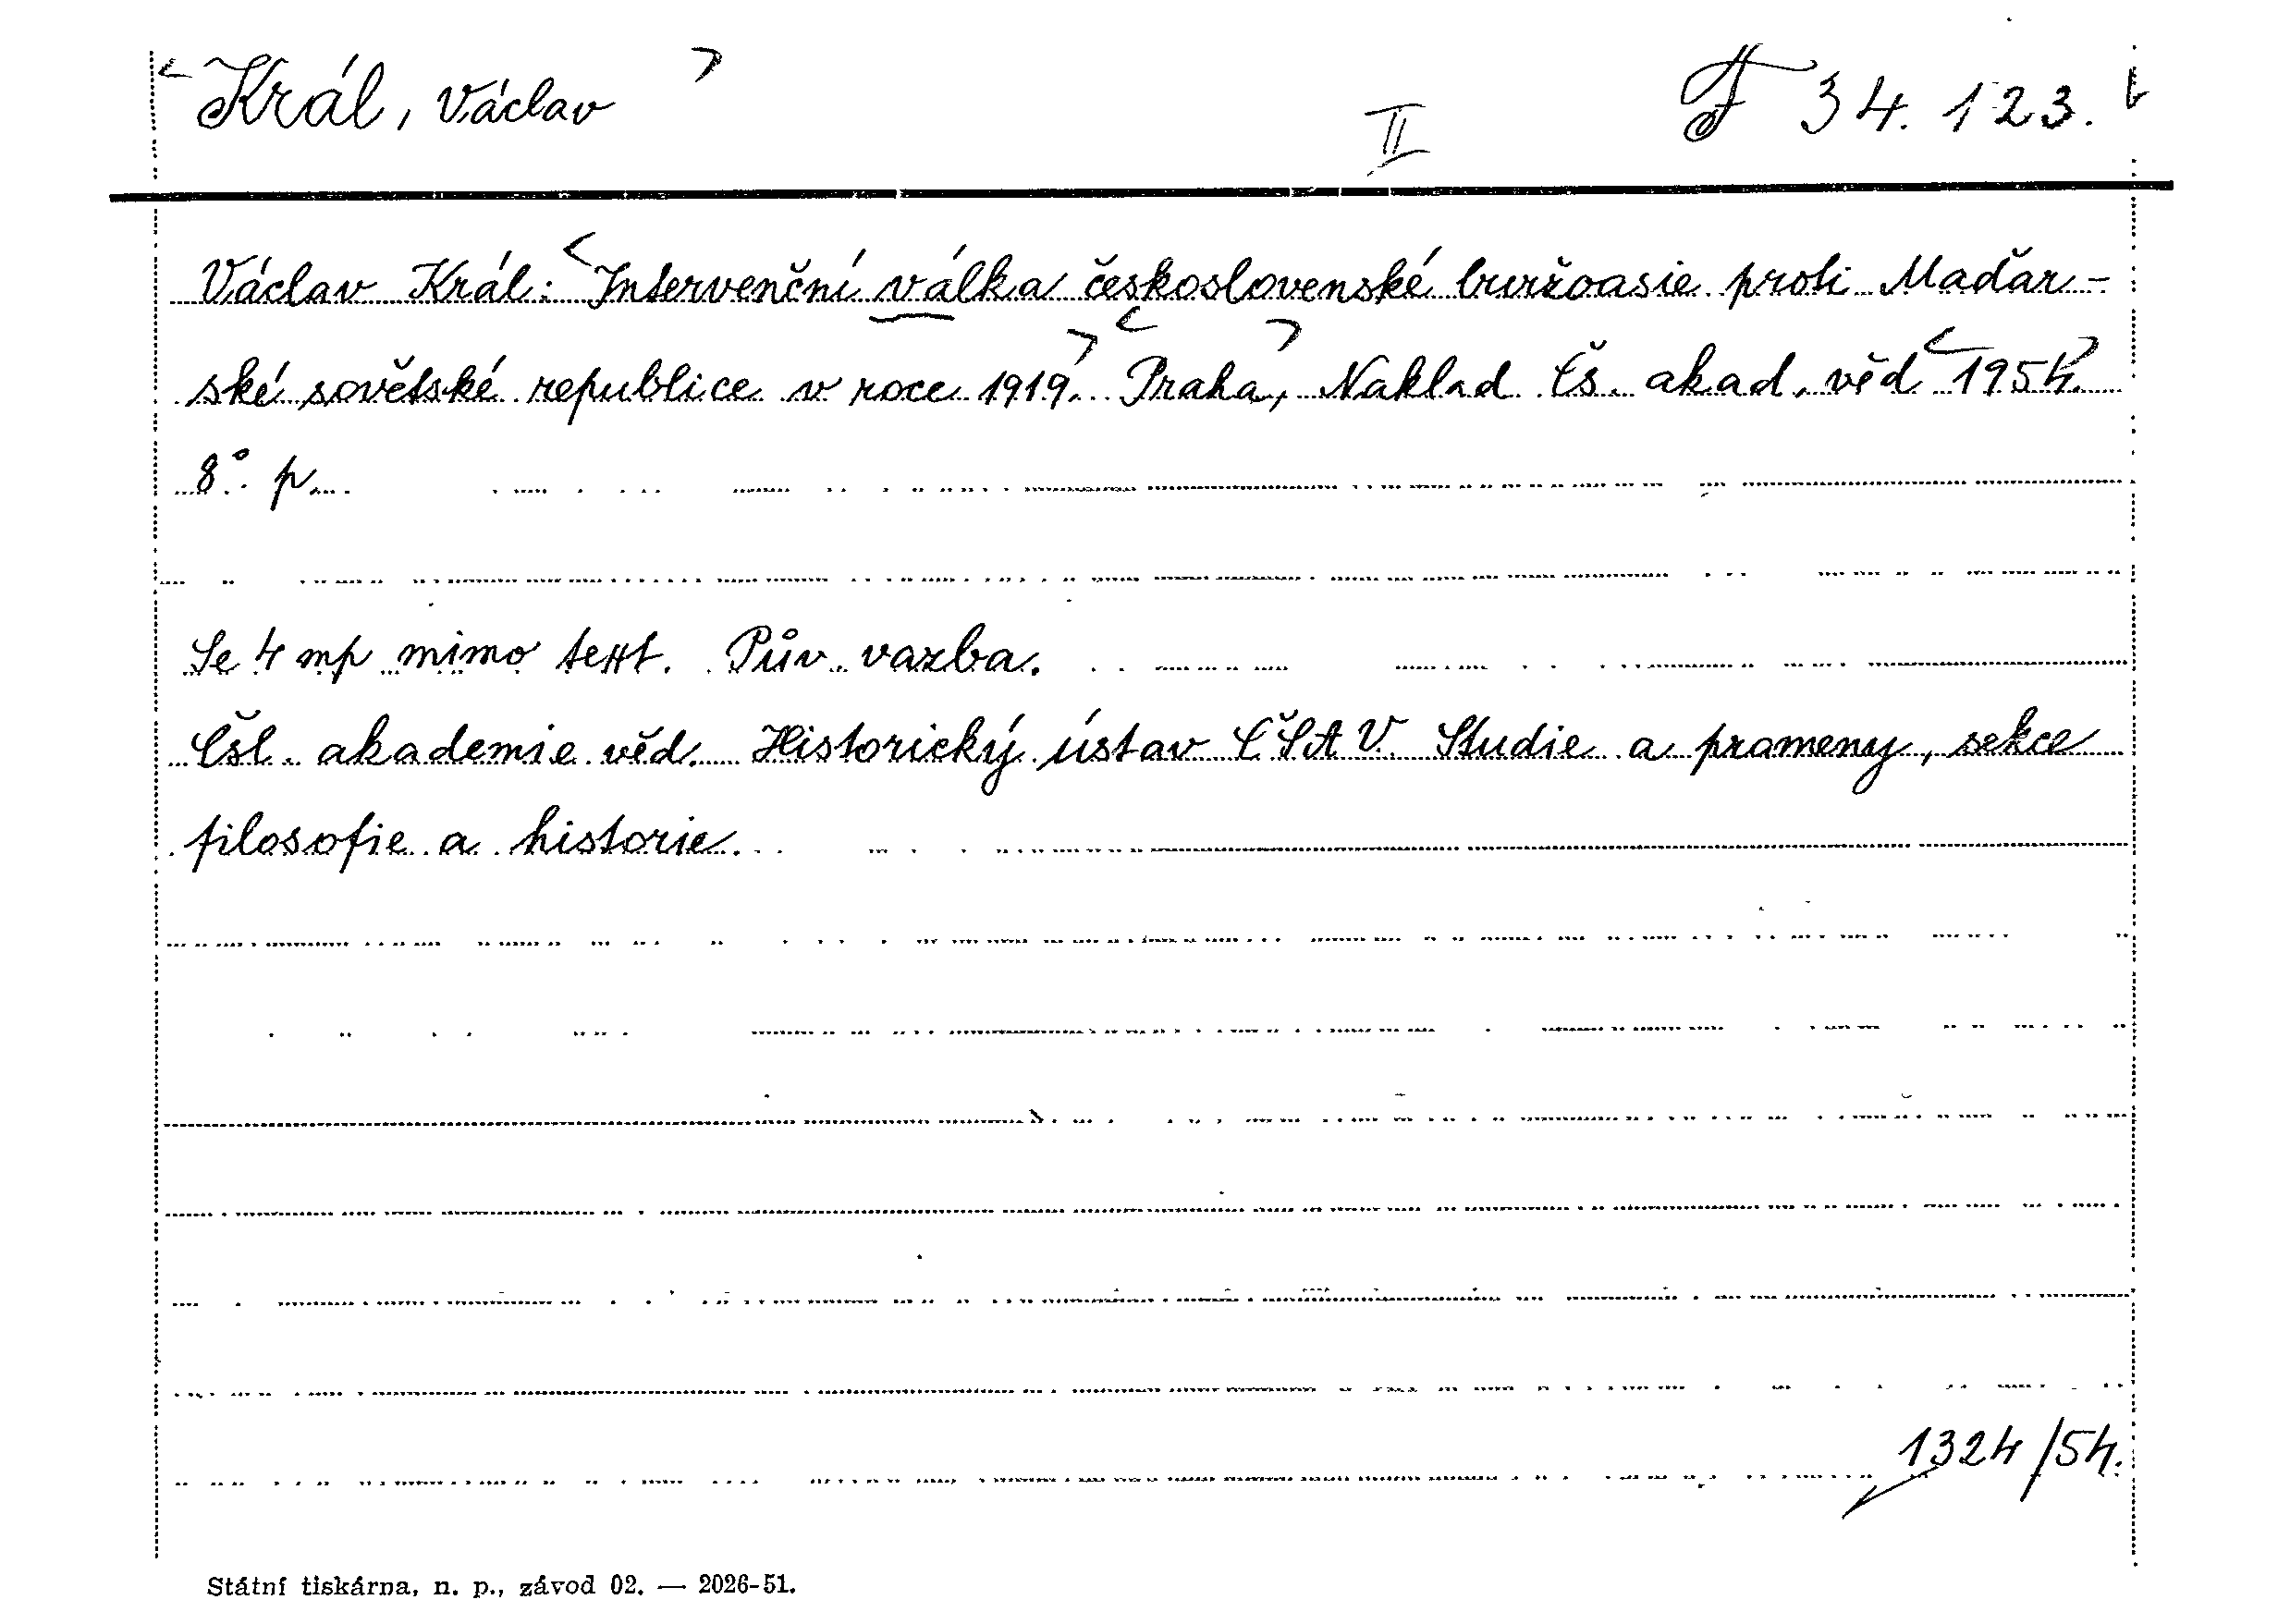 Král, Václav II F 34.123.
Václav Král: Intervenční válka československé buržoasie proti Maďar-
ské sovětské republice v roce 1919. Praha, Naklad. Čs. akad. věd 1954.
8°. p.
Se 4 mp mimo text. Pův. vazba.
Čsl. akademie věd. Historický ústav ČSAV. Studie a prameny, sekce
filosofie a historie.
1324/54.
Státní tiskárna, n. p., závod 02. — 2026-51.